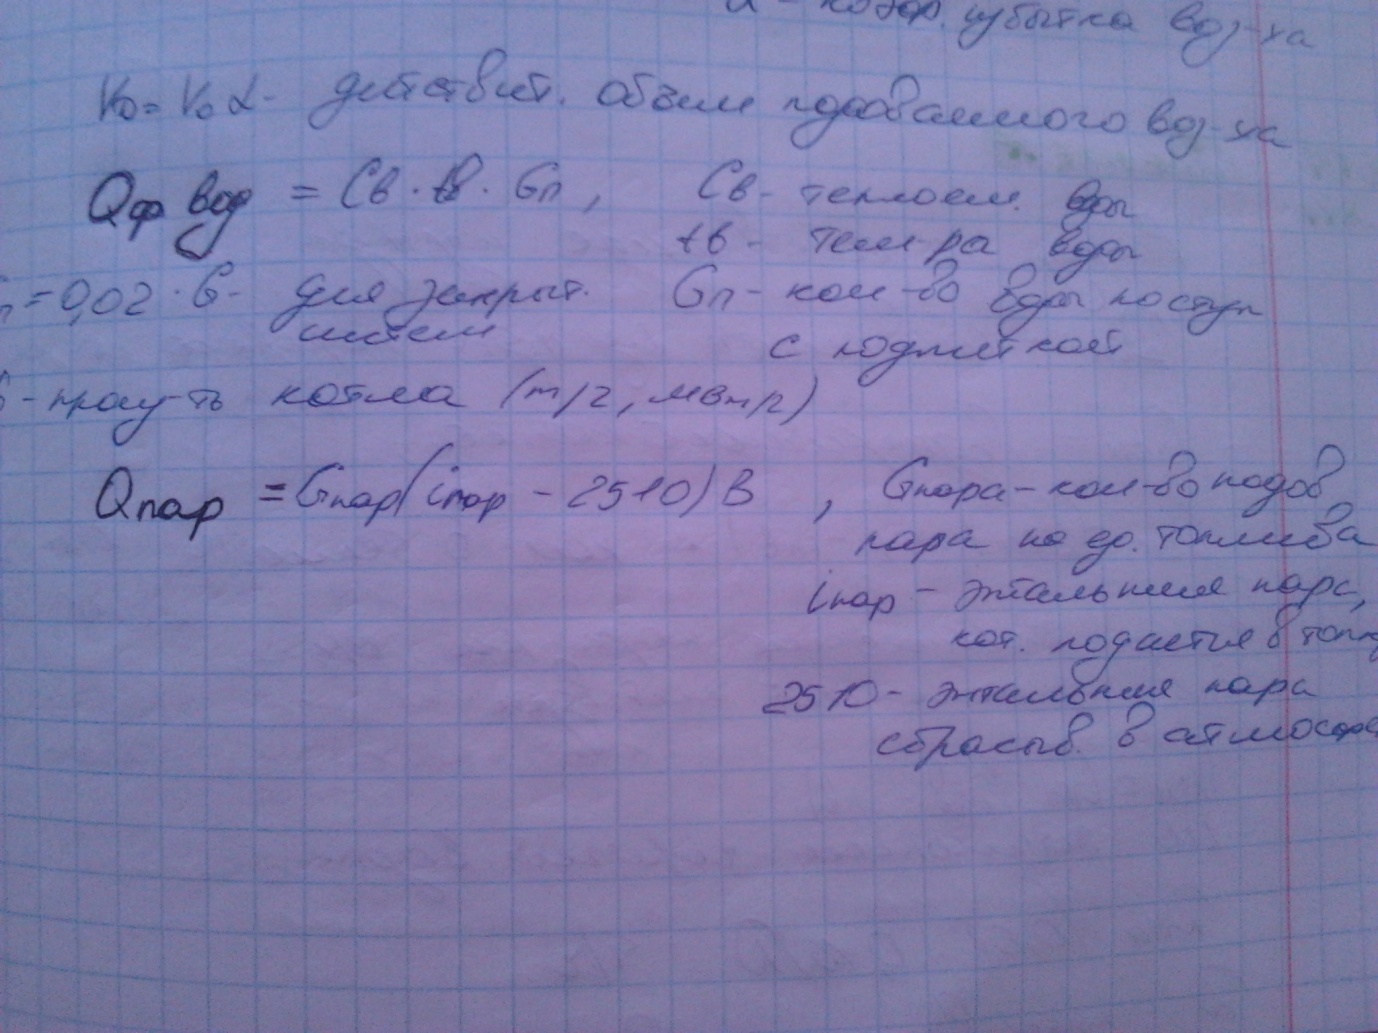 α - коэф. избытка воз-ха
V₀ = V₀ α - действит. объем подаваемого воз-ха
Qф вод = Cв · tв · Gп , Cв - теплоем. воды
tв - тем-ра воды
= 0,02 · G - для закрыт. Gп - кол-во воды поступ
систем с подпиткой
- произ-ть котла (т/г, мвт/г)
Qпар = Gпар (iпар - 2510) B , Gпара - кол-во подав
пара на ед. топлива
iпар - энтальпия пара,
кот. подается в топк
2510 - энтальпия пара
сбрасыв. в атмосфер